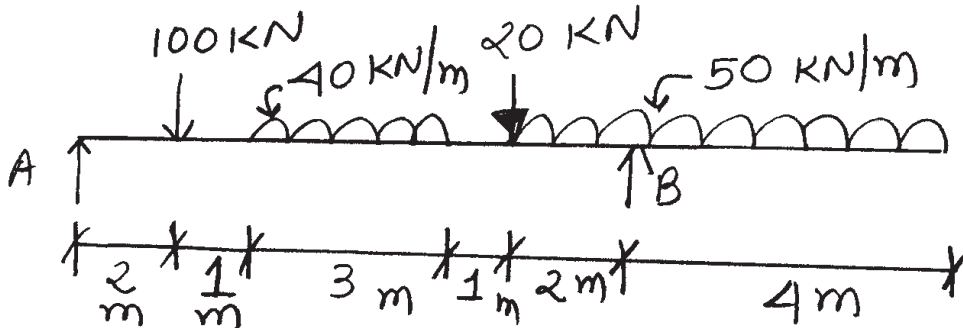 100 KN
20 KN
40 KN/m
50 KN/m
A
B
2 m
1 m
3 m
1 m
2 m
4 m